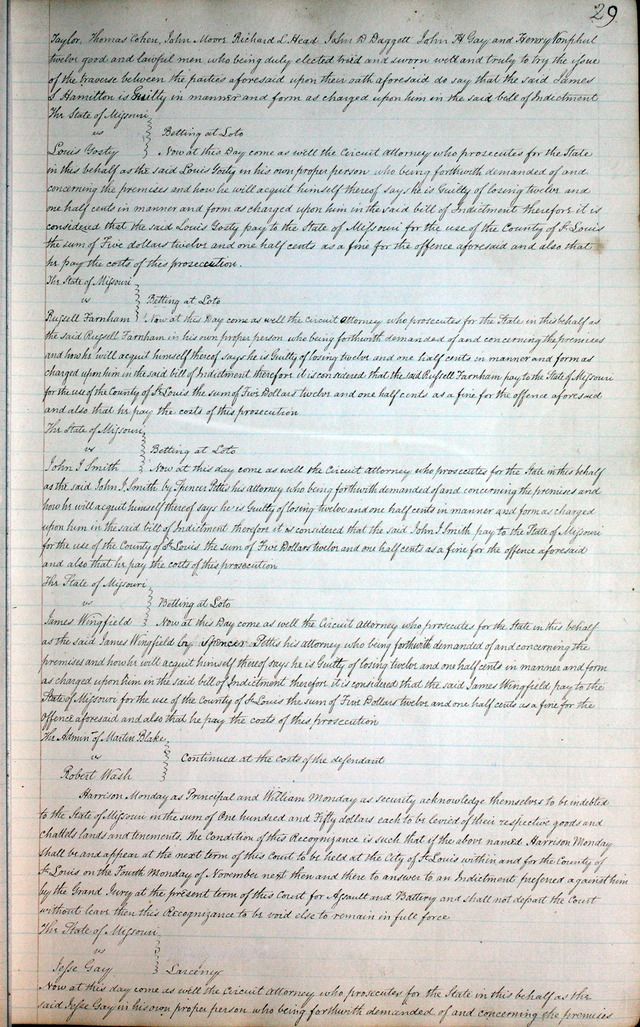 29
Taylor, Thomas Cohen, John Moore Richard L. Head John D Daggett John H Gay and Henry Vonphul
twelve good and lawful men, who being duly elected tried and sworn well and truly to try the issue
of the traverse between the parties aforesaid upon their oath aforesaid do say that the said James
S Hamilton is Guilty in manner and form as charged upon him in the said bill of Indictment
The State of Missouri
vs
Betting at Loto
Louis Gosty Now at this Day come as well the Circuit attorney who prosecutes for the State
in this behalf as the said Louis Gosty in his own proper person who being forthwith demanded of and
concerning the premises and how he will acquit himself thereof says he is Guilty of losing twelve and
one half cents in manner and form as charged upon him in the said bill of Indictment therefore it is
considered that the said Louis Gosty pay to the State of Missouri for the use of the County of St Louis
the sum of Five dollars twelve and one half cents as a fine for the offence aforesaid and also that
he pay the costs of this prosecution.
The State of Missouri
vs
Betting at Loto
Russell Farnham Now at this Day come as well the Circuit attorney who prosecutes for the State in this behalf as
the said Russell Farnham in his own proper person who being forthwith demanded of and concerning the premises
and how he will acquit himself thereof says he is Guilty of losing twelve and one half cents in manner and form as
charged upon him in the said bill of Indictment therefore it is considered that the said Russell Farnham pay to the State of Missouri
for the use of the County of St Louis the sum of Five Dollars twelve and one half cents as a fine for the offence aforesaid
and also that he pay the costs of this prosecution
The State of Missouri
vs
Betting at Loto
John I Smith Now at this day come as well the Circuit attorney who prosecutes for the State in this behalf
as the said John I Smith by Spencer Pettis his attorney who being forthwith demanded of and concerning the premises and
how he will acquit himself thereof says he is Guilty of losing twelve and one half cents in manner and form as charged
upon him in the said bill of Indictment therefore it is considered that the said John I Smith pay to the State of Missouri
for the use of the County of St Louis the sum of Five Dollars twelve and one half cents as a fine for the offence aforesaid
and also that he pay the costs of this prosecution
The State of Missouri
vs
Betting at Loto
James Wingfield Now at this Day come as well the Circuit attorney who prosecutes for the State in this behalf
as the said James Wingfield by Spencer Pettis his attorney who being forthwith demanded of and concerning the
premises and how he will acquit himself thereof says he is Guilty of losing twelve and one half cents in manner and form
as charged upon him in the said bill of Indictment therefore it is considered that the said James Wingfield pay to the
State of Missouri for the use of the County of St Louis the sum of Five Dollars twelve and one half cents as a fine for the
offence aforesaid and also that he pay the costs of this prosecution
The Admin. of Martin Blake
vs
Continued at the costs of the defendant
Robert Wash
Harrison Monday as Principal and William Monday as security acknowledge themselves to be indebted
to the State of Missouri in the sum of One hundred and Fifty dollars each to be levied of their respective goods and
chattels lands and tenements, the Condition of this Recognizance is such that if the above named Harrison Monday
shall be and appear at the next term of this Court to be held at the City of St Louis within and for the County of
St Louis on the Fourth Monday of November next then and there to answer to an Indictment preferred against him
by the Grand Jury at the present term of this Court for Assault and Battery and shall not depart the Court
without leave then this Recognizance to be void else to remain in full force
The State of Missouri
vs
Jesse Gay Larceny
Now at this day come as well the Circuit attorney who prosecutes for the State in this behalf as the
said Jesse Gay in his own proper person who being forthwith demanded of and concerning the premises